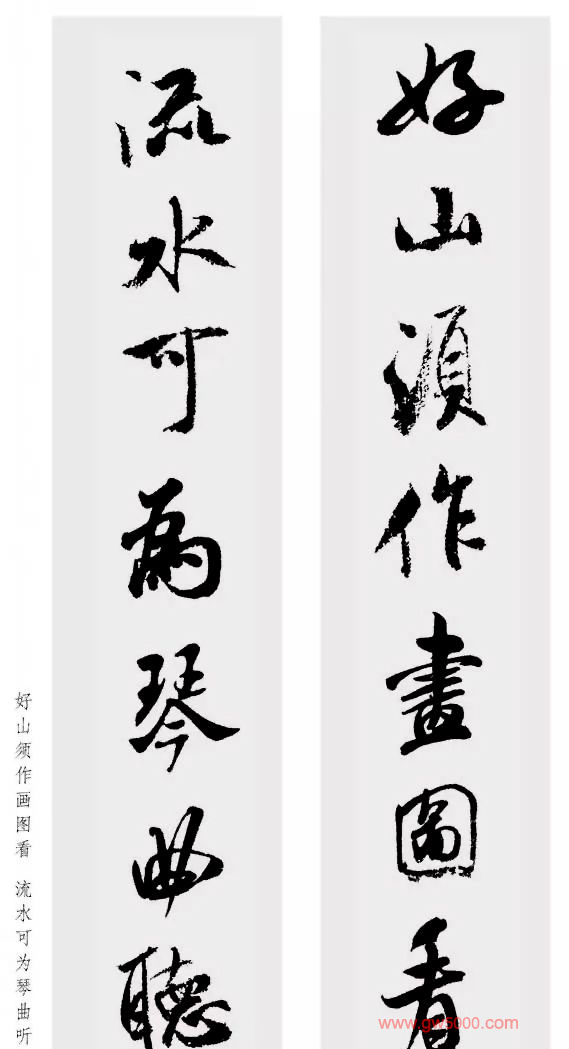 好山須作畫圖看
流水可為琴曲聽
好山须作画图看 流水可为琴曲听
www.gw5000.com